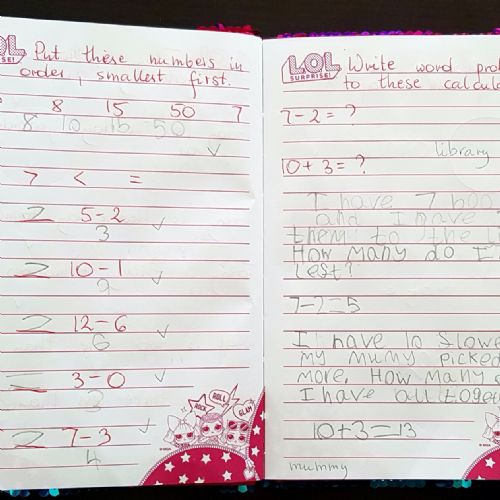 LOL
SURPRISE!
Put these numbers in
order, smallest first.
8 15 50 7
8 10 15 50
> < =
2 5-2
3
2 10-1
9
2 12-6
6
= 3-0
3
2 7-3
4
ROCK ROLL GLAM
LOL
SURPRISE!
Write word
to these
7-2=?
library
10+3=?
I have 7
and I have
them to the
How many do I
lest?
7-2=5
I have 10 slowe
my mumy picked
more. How many
I have all
10+3=13
mummy